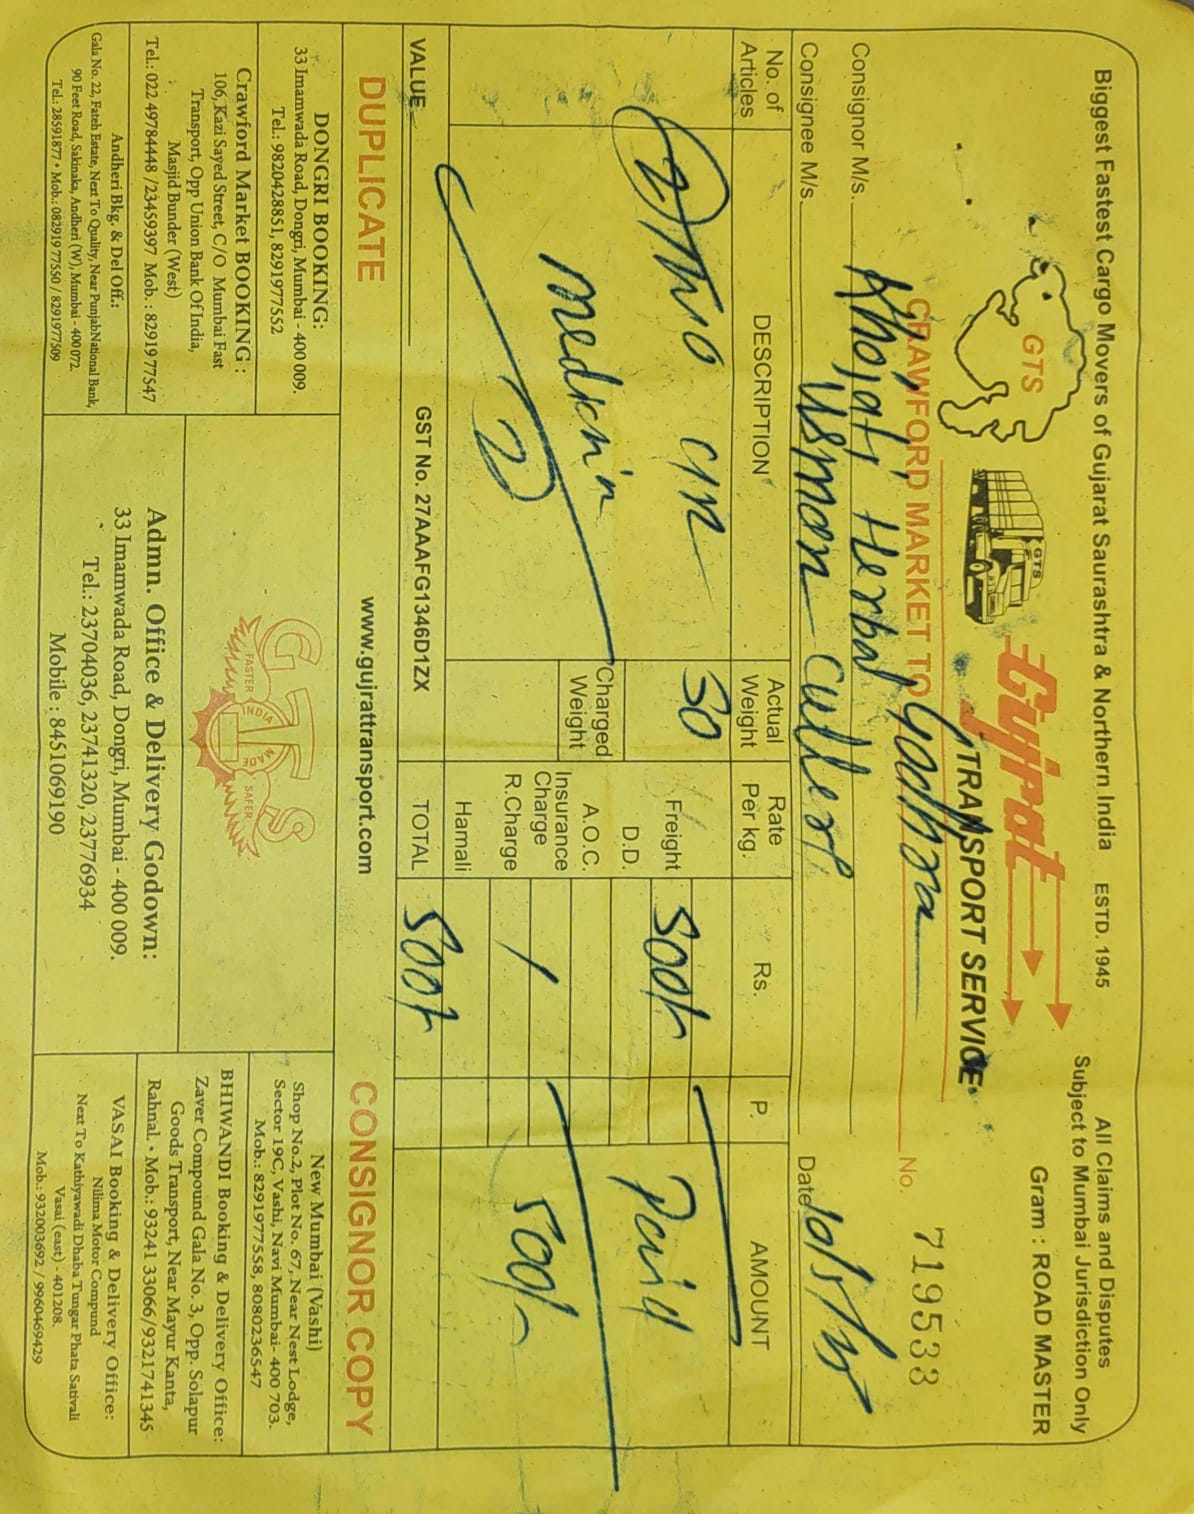 Biggest Fastest Cargo Movers of Gujarat Saurashtra & Northern India ESTD. 1945
All Claims and Disputes
Subject to Mumbai Jurisdiction Only
Gram : ROAD MASTER
GTS
GTS
Gujrat
TRANSPORT SERVICE
CRAWFORD MARKET TO
No. 719533
Consignor M/s. Khojati Herbal
Consignee M/s. Usman
Date
No. of Articles
DESCRIPTION
Actual Weight
Rate Per kg.
Rs.
P.
AMOUNT
2 Two
30
Freight 500/-
D.D.
Paid
Charged Weight
A.O.C.
Insurance Charge
R.Charge
500/-
2
Hamali
VALUE
GST No. 27AAAFG1346D1ZX
TOTAL 500/-
DUPLICATE
www.gujrattransport.com
CONSIGNOR COPY
DONGRI BOOKING:
33 Imamwada Road, Dongri, Mumbai - 400 009.
Tel.: 9820428851, 8291977552
Crawford Market BOOKING :
106, Kazi Sayed Street, C/O Mumbai Fast
Transport, Opp Union Bank Of India,
Masjid Bunder (West)
Tel.: 022 49784448 /23459397 Mob. : 82919 77547
Andheri Bkg. & Del Off.:
Gala No. 22, Fateh Estate, Next To Quality, Near PunjabNational Bank,
90 Feet Road, Sakinaka, Andheri (W), Mumbai - 400 072.
Tel.: 28591877 • Mob.: 082919 77550 / 8291977509
GTS
FASTER
INDIA
MADE
SAFER
Admn. Office & Delivery Godown:
33 Imamwada Road, Dongri, Mumbai - 400 009.
Tel.: 23704036, 23741320, 23776934
Mobile : 8451069190
New Mumbai (Vashi)
Shop No.2, Plot No. 67, Near Nest Lodge,
Sector 19C, Vashi, Navi Mumbai- 400 703.
Mob.: 8291977558, 8080236547
BHIWANDI Booking & Delivery Office:
Zaver Compound Gala No. 3, Opp. Solapur
Goods Transport, Near Mayur Kanta,
Rahnal. • Mob.: 93241 33066/9321741345
VASAI Booking & Delivery Office:
Nilima Motor Compund
Next To Kathiyawadi Dhaba Tungar Phata Sativali
Vasai (east) - 401208.
Mob.: 932003692 / 9960469429